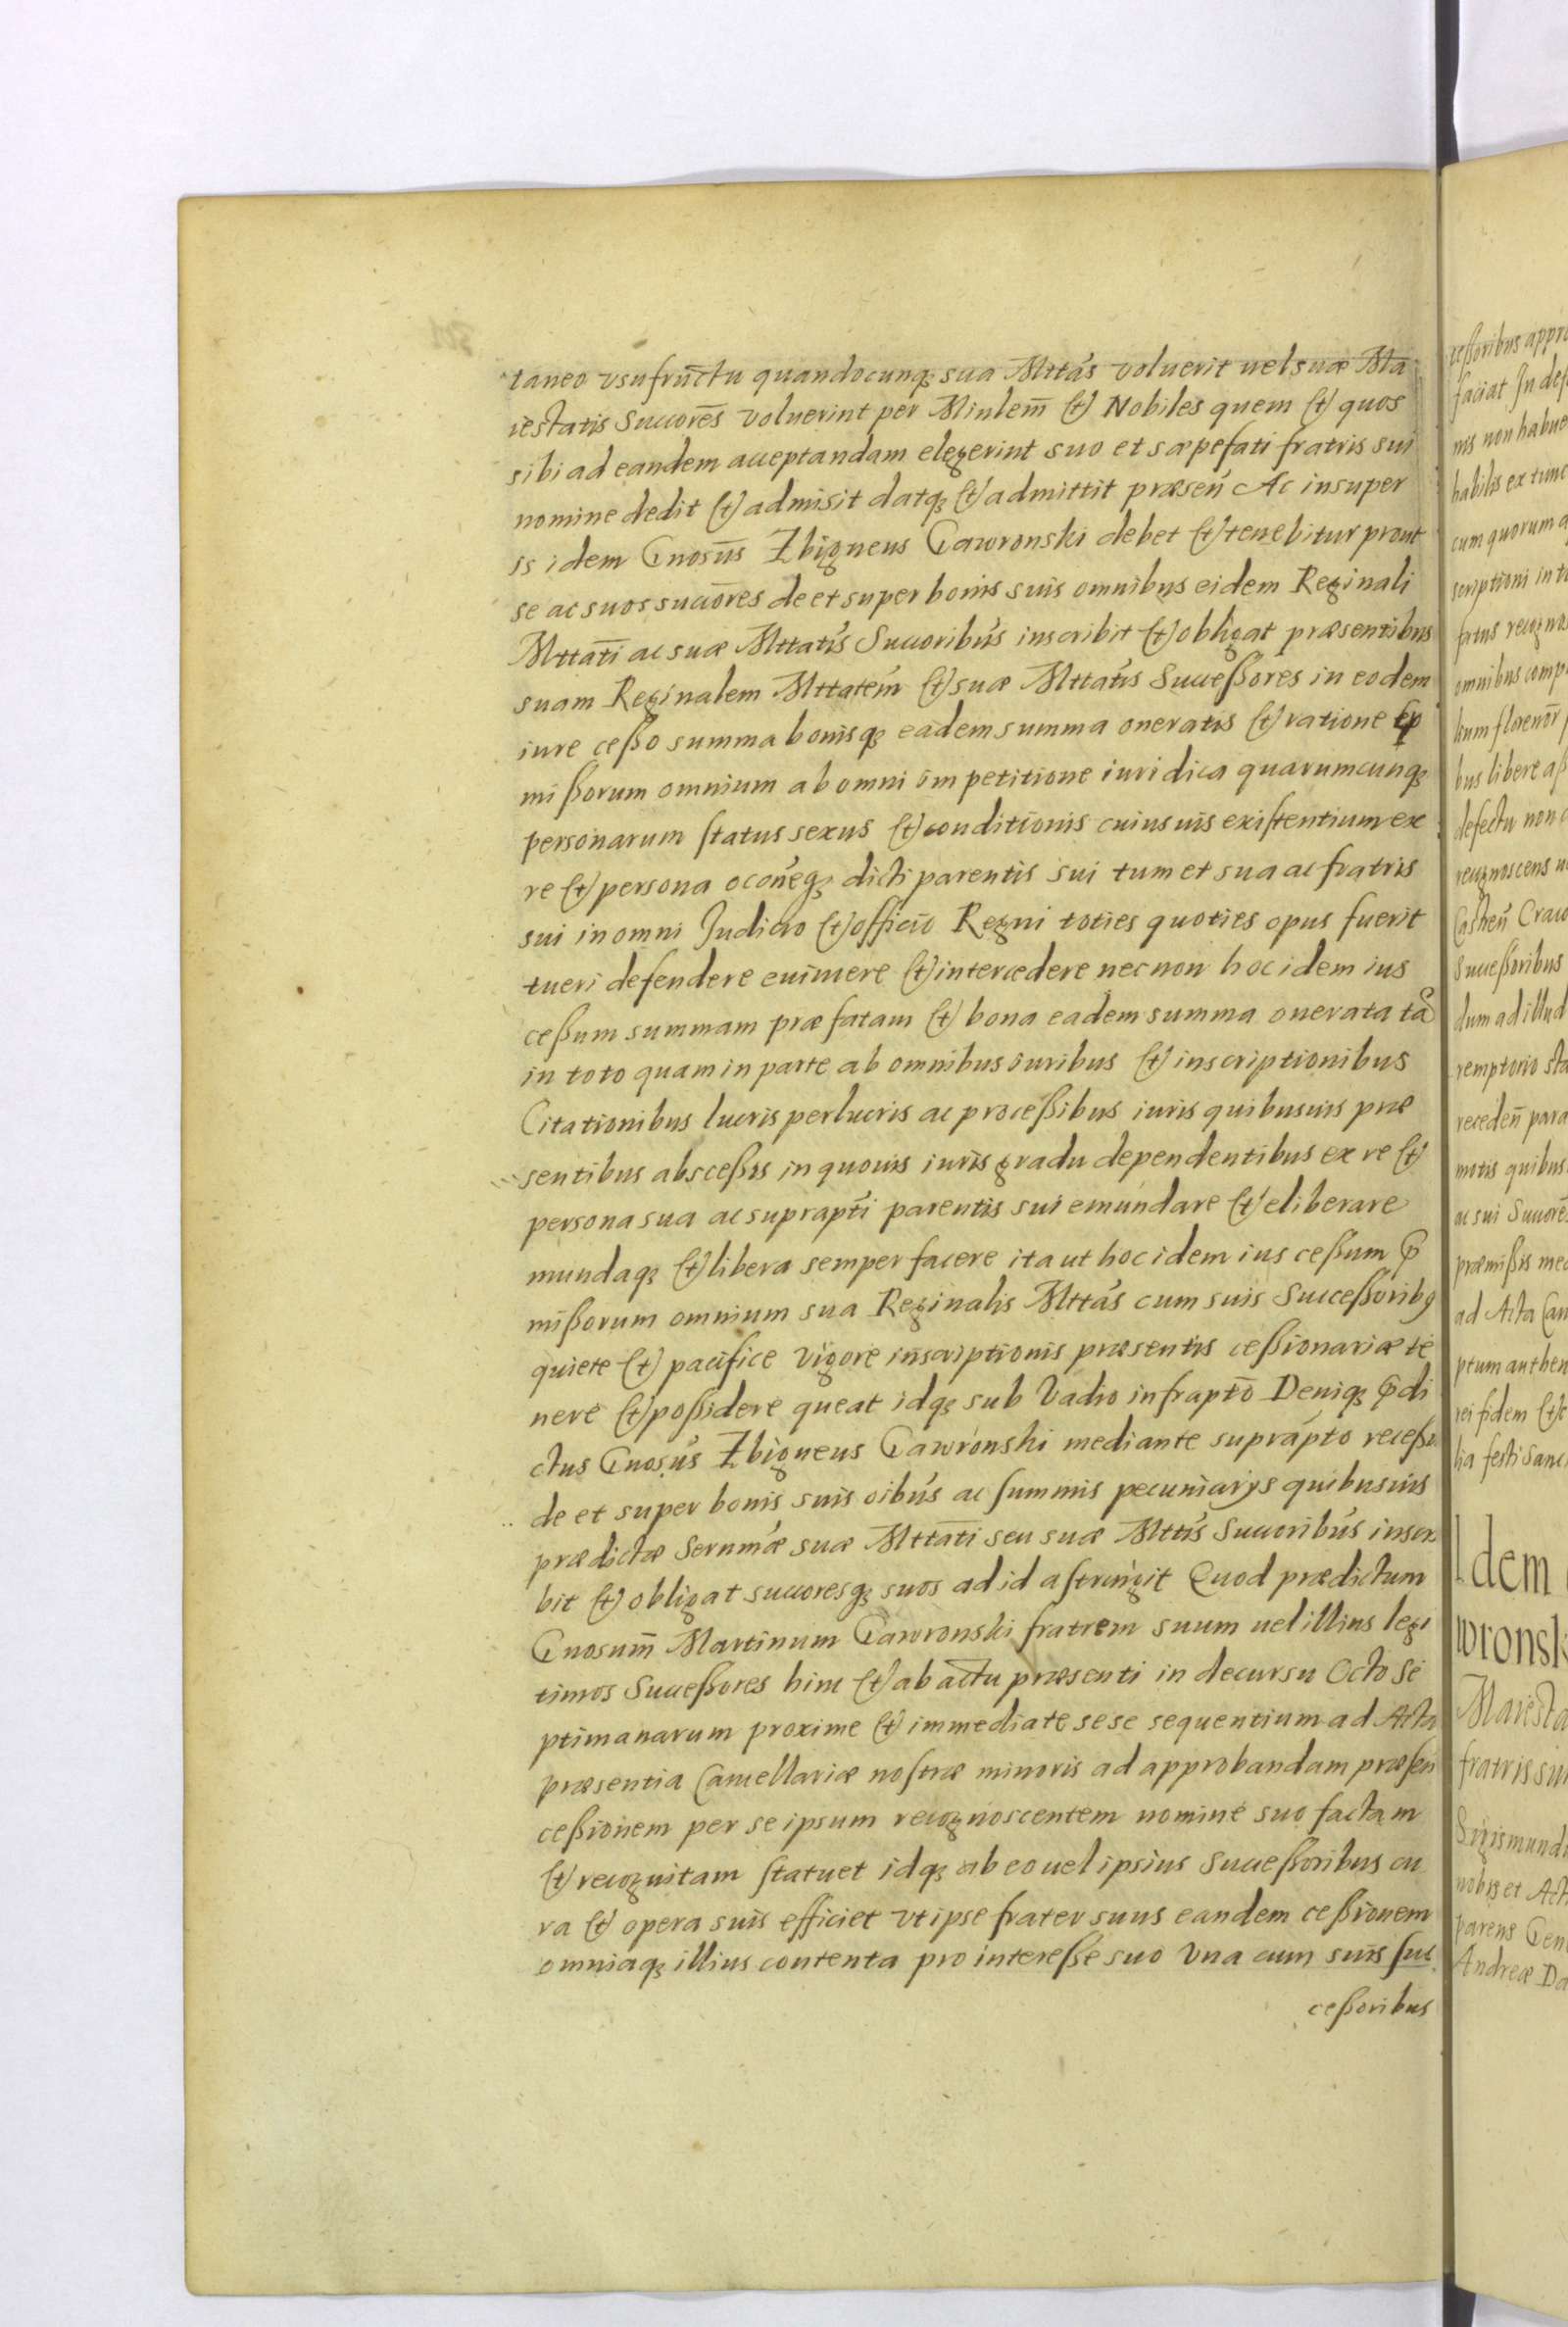 taneo vsufructu quandocunq₃ sua Mttas voluerit uel suæ Ma
iestatis Succores̄ voluerint per Minlem̄ (et) Nobiles quem (et) quos
sibi ad eandem acceptandam elegerint suo et sæpefati fratris sui
nomine dedit (et) admisit datq₃ (et) admittit præsen̄ Ac insuper
is idem Gnosus̄ Zbigneus Gawronski debet (et) tenebitur prout
se ac suos succōres de et super bonis suis omnibus eidem Reginali
Mttati ac suæ Mttatis Succoribus inscribit (et) obligat præsentibus
suam Reginalem Mttatem (et) suæ Mttatis Successores in eodem
iure cesso summa bonisq₃ eadem summa oneratis (et) ratione p̄
missorum omnium ab omni impetitione iuridica quarumcunq₃
personarum status sexus (et) conditionis cuiusuis existentium ex
re (et) persona oconeq₃ dicti parentis sui tum et sua ac fratris
sui in omni Judicio (et) officio Regni toties quoties opus fuerit
tueri defendere euincere (et) intercedere nec non hoc idem ius
cessum summam præfatam (et) bona eadem summa onerata tā
in toto quam in parte ab omnibus iuribus (et) inscriptionibus
Citationibus lucris perlucris ac processibus iuris quibusuis præ
sentibus abscessis in quouis iuris gradu dependentibus ex re (et)
persona sua ac suprapti parentis sui emundare (et) eliberare
mundaq₃ (et) libera semper facere ita ut hoc idem ius cessum p̄
missorum omnium sua Reginalis Mttas cum suis Successoribq
quiete (et) pacifice vigore inscriptionis præsentis cessionariæ te
nere (et) possidere queat idq₃ sub Vadio infrapto Deniq₃ p̄di
ctus Gnosus Zbigneus Gawronski mediante suprapto recessu
de et super bonis suis oibus ac summis pecuniarijs quibusuis
prædictæ Sernmæ suæ Mttati seu suæ Mttis Succoribus inscri
bit (et) obligat succoresq₃ suos ad id astringit Quod prædictum
Gnosum̄ Martinum Gawronski fratrem suum uel illius legi
timos Successores hinc (et) ab actu præsenti in decursu Octo Se
ptimanarum proxime (et) immediate sese sequentium ad Acta
præsentia Cancellariæ nostræ minoris ad approbandam præsen
cessionem per se ipsum recognoscentem nomine suo factam
(et) recognitam statuet idq₃ ab eo uel ipsius Successoribus cu
ra (et) opera suis efficiet vt ipse frater suus eandem cessionem
omniaq₃ illius contenta pro interesse suo Vna cum suis suc
cessoribus
cessoribus appro
faciat In def
nis non habue
habilis ex tunc
cum quorum a
scriptioni in to
fatus recognos
omnibus comp
lium florenor p
bus libere a
defectu non
recognoscens
Castren̄ Craco
Successoribus
dum ad illud
remptorio sta
receden̄ para
motis quibus
ac sui Succores
præmissis med
ad Acta Can
ptum authen
rei fidem (et)
lia festi Sanc
Idem
wronsk
Maiesta
fratris sui
Sigismund
nobis et Act
parens Gen
Andreæ Da